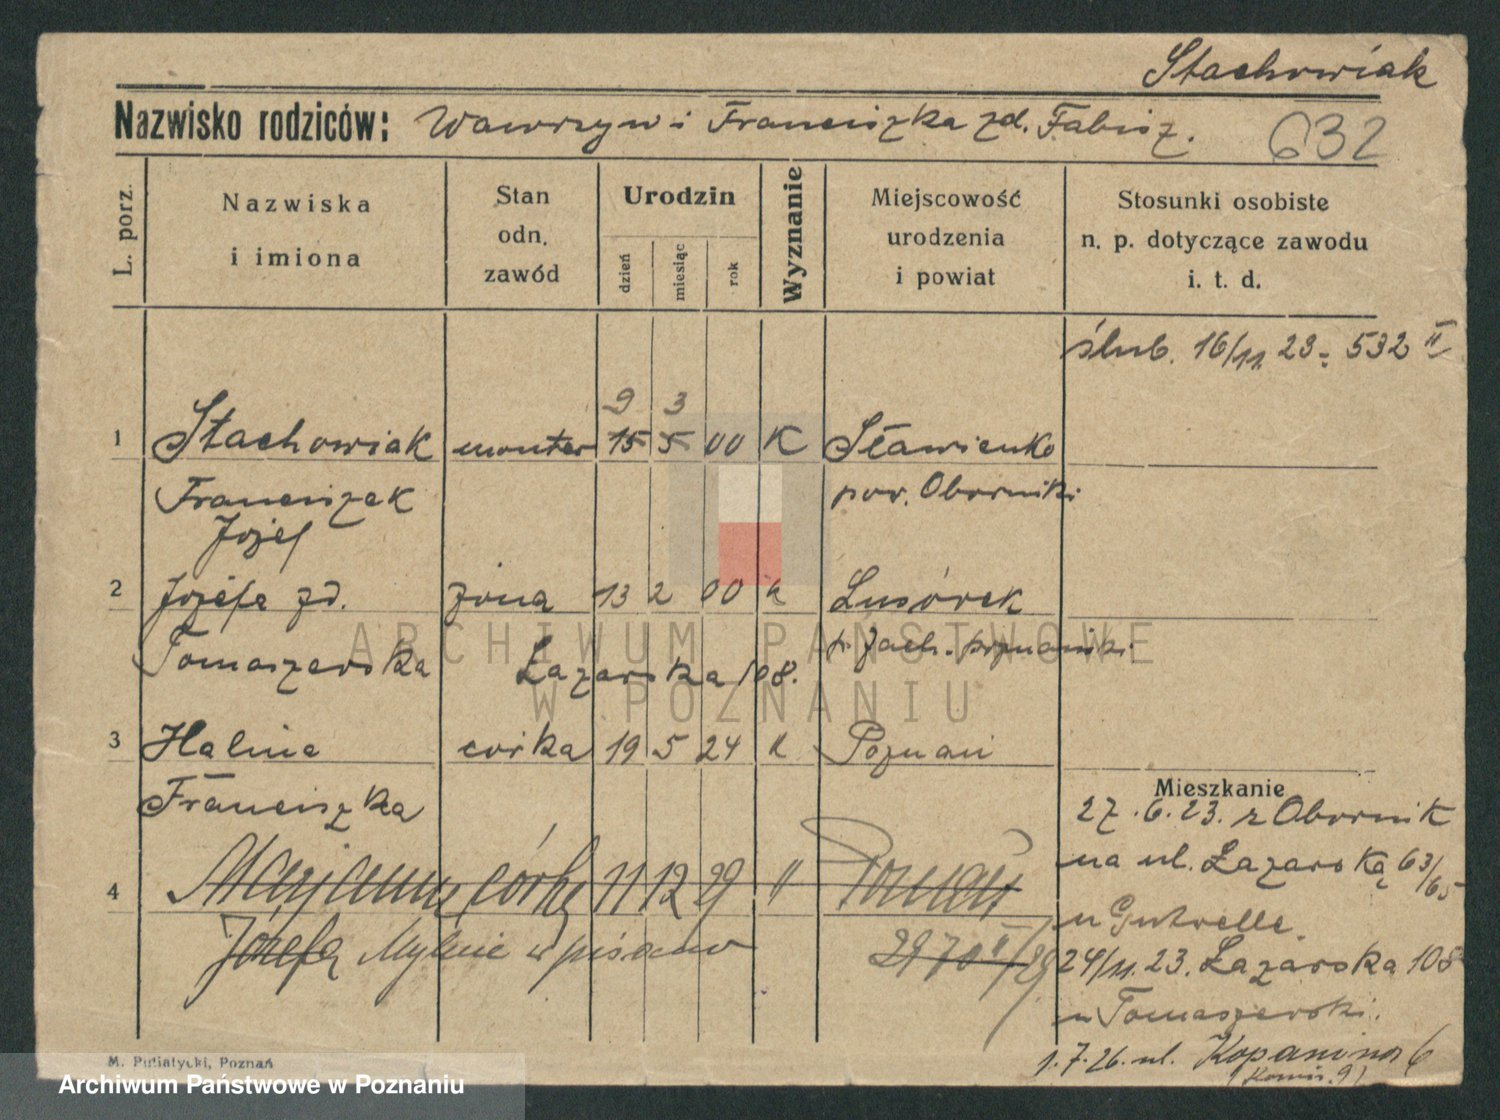 Stachowiak
Nazwisko rodziców: Wawrzyn i Franciszka zd. Fabisz.
632
L. porz.
Nazwiska
i imiona
Stan
odn.
zawód
Urodzin
dzień
miesiąc
rok
Wyznanie
Miejscowość
urodzenia
i powiat
Stosunki osobiste
n. p. dotyczące zawodu
i. t. d.
ślub. 16/11. 23. 532 II
9 3
1 Stachowiak monter 15 5 00 K Sławienko
Franciszek pow. Oborniki
Józef
2 Józefa zd. żona 13 2 00 k Lusówek
Tomaszewska Łazarska 108. p. zach. poznański
3 Halina córka 19 5 24 " Poznań
Franciszka
Mieszkanie
27.6.23. z Obornik
na ul. Łazarską 63/65
u
4 Marjanna córka 11 12 29 " Poznań
Józefa Mylnie wpisano 2970 II/29
24/11.23. Łazarska 108
u Tomaszewski.
1.7.26. ul. Kopanina 6
(Komis. 9)
M. Putiatycki, Poznań
ARCHIWUM PAŃSTWOWE
W POZNANIU
Archiwum Państwowe w Poznaniu